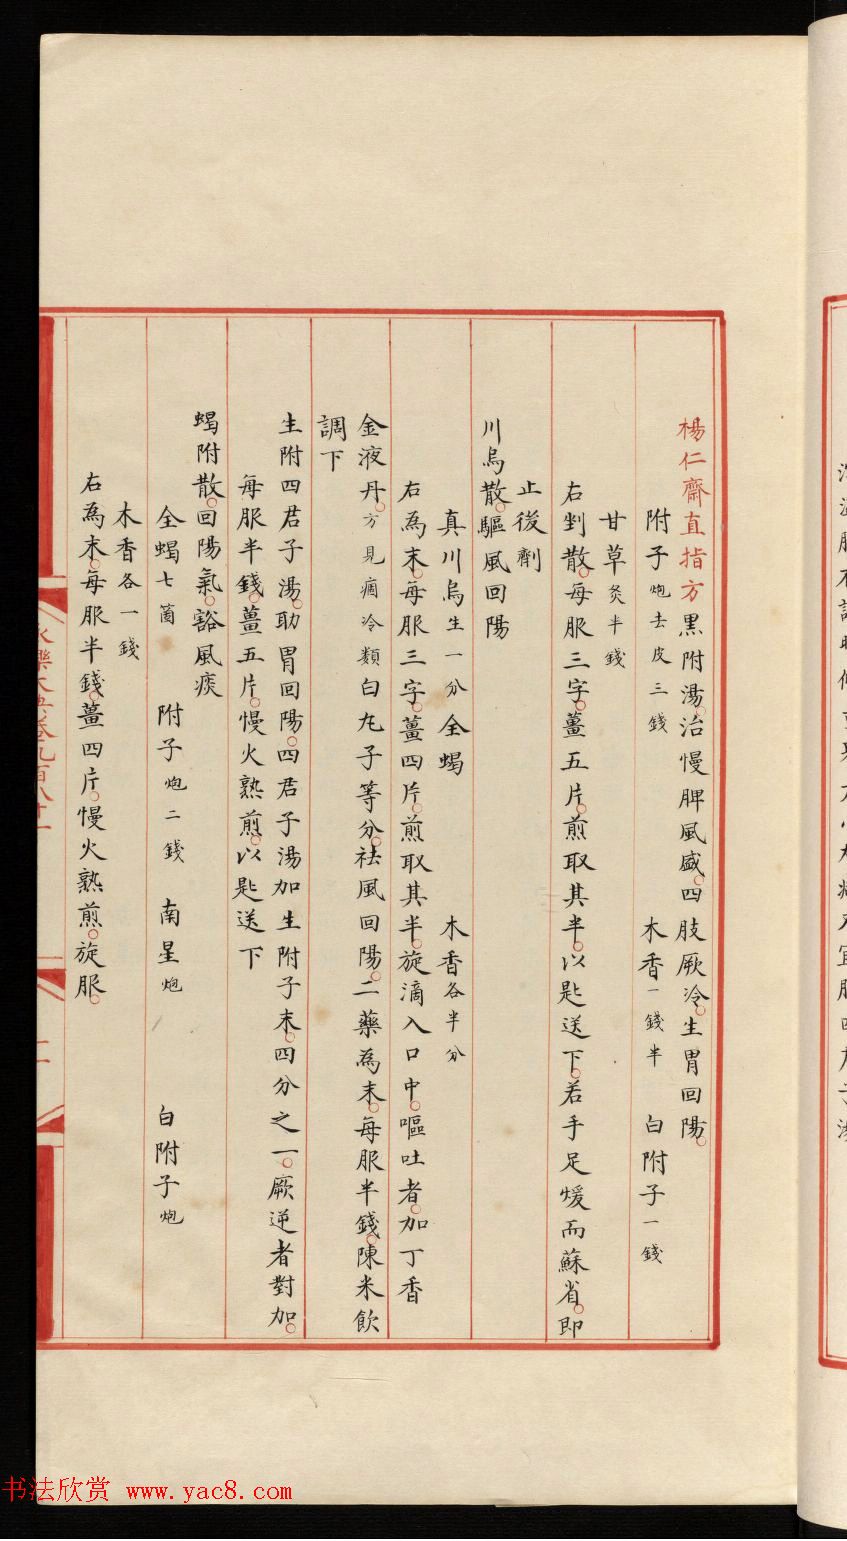 楊仁齋直指方黑附湯。治慢脾風盛。四肢厥冷。生胃回陽。
附子炮去皮三錢 木香一錢半 白附子一錢
甘草炙半錢
右剉散。每服三字。薑五片。煎取其半。以匙送下。若手足煖而蘇省。即
止後劑
川烏散。驅風回陽
真川烏生一分 全蝎 木香各半分
右為末。每服三字。薑四片。煎取其半。旋滴入口中。嘔吐者。加丁香
金液丹。方見痼冷類白丸子等分。祛風回陽。二藥為末。每服半錢。陳米飲
調下
生附四君子湯。助胃回陽。四君子湯加生附子末。四分之一。厥逆者對加。
每服半錢。薑五片。慢火熟煎。以匙送下
蝎附散。回陽氣。豁風痰
全蝎七箇 附子炮二錢 南星炮 白附子炮
木香各一錢
右為末。每服半錢。薑四片。慢火熟煎。旋服。
永樂大典卷九百八十一
二
书法欣赏 www.yac8.com